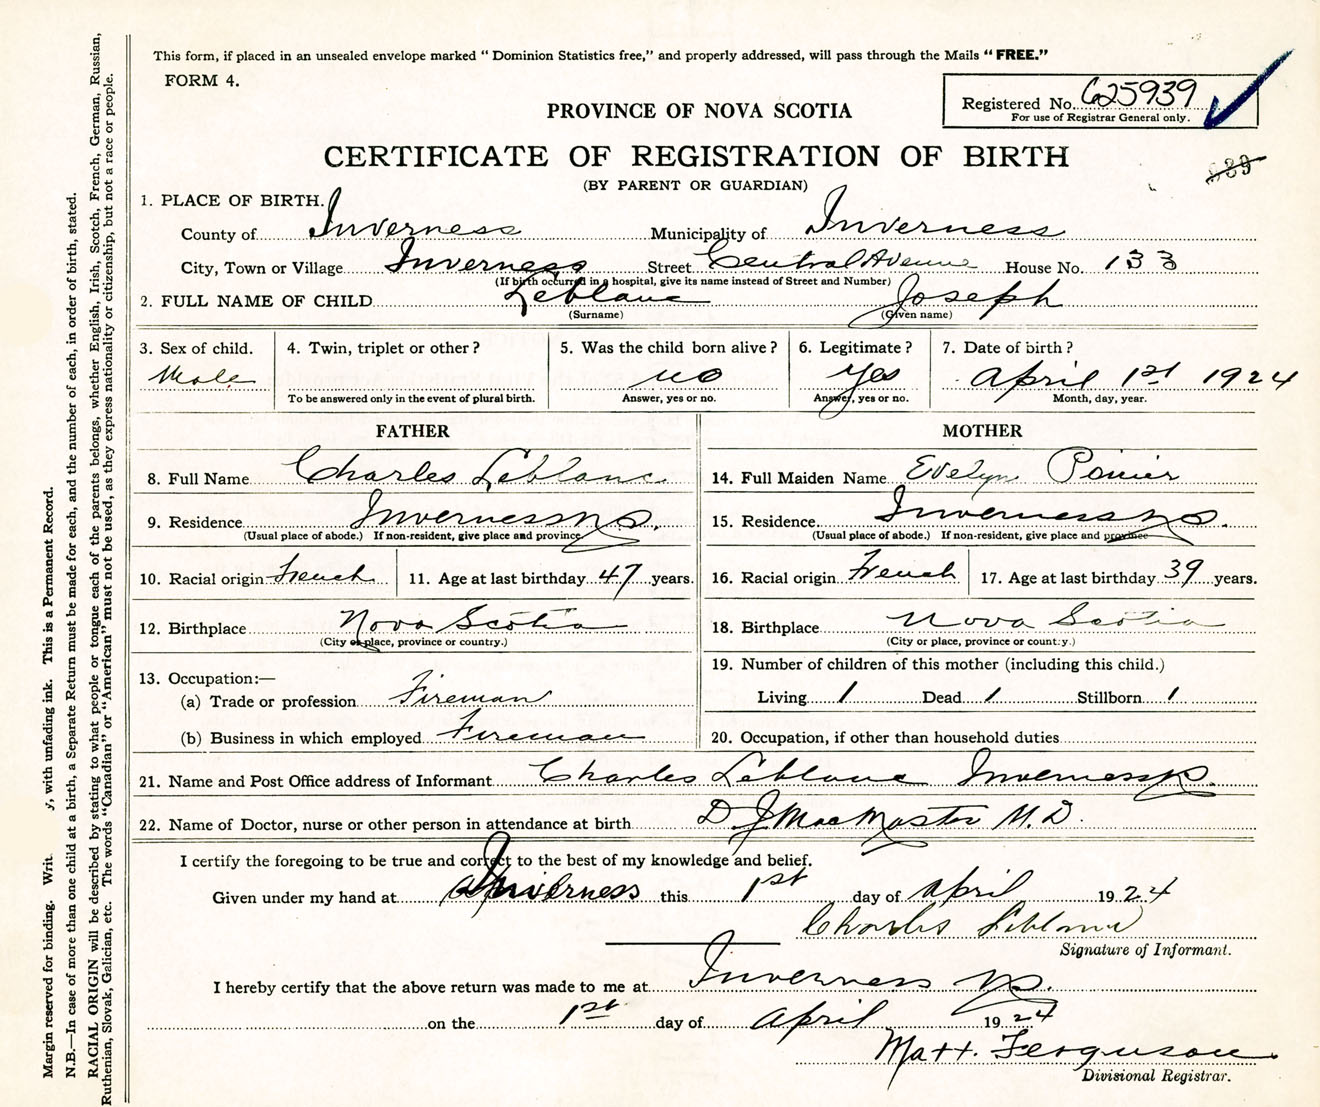 This form, if placed in an unsealed envelope marked “Dominion Statistics free,” and properly addressed, will pass through the Mails “FREE.”
FORM 4.
Registered No. 625939
For use of Registrar General only.
PROVINCE OF NOVA SCOTIA
CERTIFICATE OF REGISTRATION OF BIRTH
939
(BY PARENT OR GUARDIAN)
1. PLACE OF BIRTH.
County of Inverness Municipality of Inverness
City, Town or Village Inverness Street Central Avenue House No. 133
(If birth occurred in a hospital, give its name instead of Street and Number)
2. FULL NAME OF CHILD Leblanc Joseph
(Surname) (Given name)
3. Sex of child. 4. Twin, triplet or other? 5. Was the child born alive? 6. Legitimate? 7. Date of birth?
Male no yes April 1st 1924
To be answered only in the event of plural birth. Answer, yes or no. Answer, yes or no. Month, day, year.
FATHER MOTHER
8. Full Name Charles Leblanc 14. Full Maiden Name Evelyn Poirier
9. Residence Inverness N.S. 15. Residence Inverness N.S.
(Usual place of abode.) If non-resident, give place and province (Usual place of abode.) If non-resident, give place and province
10. Racial origin French 11. Age at last birthday 47 years. 16. Racial origin French 17. Age at last birthday 39 years.
12. Birthplace Nova Scotia 18. Birthplace Nova Scotia
(City or place, province or country.) (City or place, province or country.)
13. Occupation:— 19. Number of children of this mother (including this child.)
(a) Trade or profession Fireman Living 1 Dead 1 Stillborn 1
(b) Business in which employed Fireman 20. Occupation, if other than household duties
21. Name and Post Office address of Informant Charles Leblanc Inverness N.S.
22. Name of Doctor, nurse or other person in attendance at birth D J MacMaster M.D.
I certify the foregoing to be true and correct to the best of my knowledge and belief.
Given under my hand at Inverness this 1st day of April 1924
Charles Leblanc
Signature of Informant.
I hereby certify that the above return was made to me at Inverness N.S.
on the 1st day of April 1924
Matt. Ferguson
Divisional Registrar.
Margin reserved for binding. Writ y, with unfading ink. This is a Permanent Record.
N.B.—In case of more than one child at a birth, a Separate Return must be made for each, and the number of each, in order of birth, stated.
RACIAL ORIGIN will be described by stating to what people or tongue each of the parents belongs, whether English, Irish, Scotch, French, German, Russian,
Ruthenian, Slovak, Galician, etc. The words “Canadian” or “American” must not be used, as they express nationality or citizenship, but not a race or people.